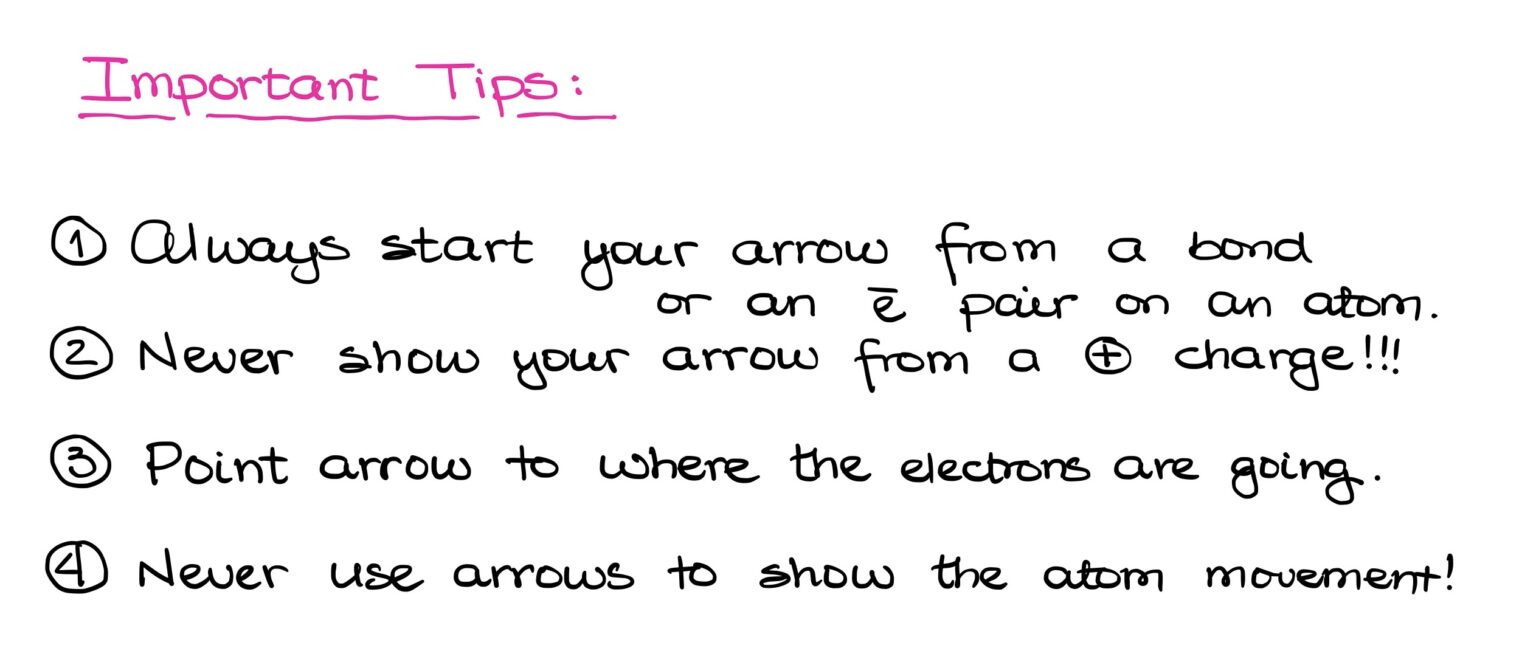 Important Tips:
① Always start your arrow from a bond
or an ē pair on an atom.
② Never show your arrow from a ⊕ charge!!!
③ Point arrow to where the electrons are going.
④ Never use arrows to show the atom movement!